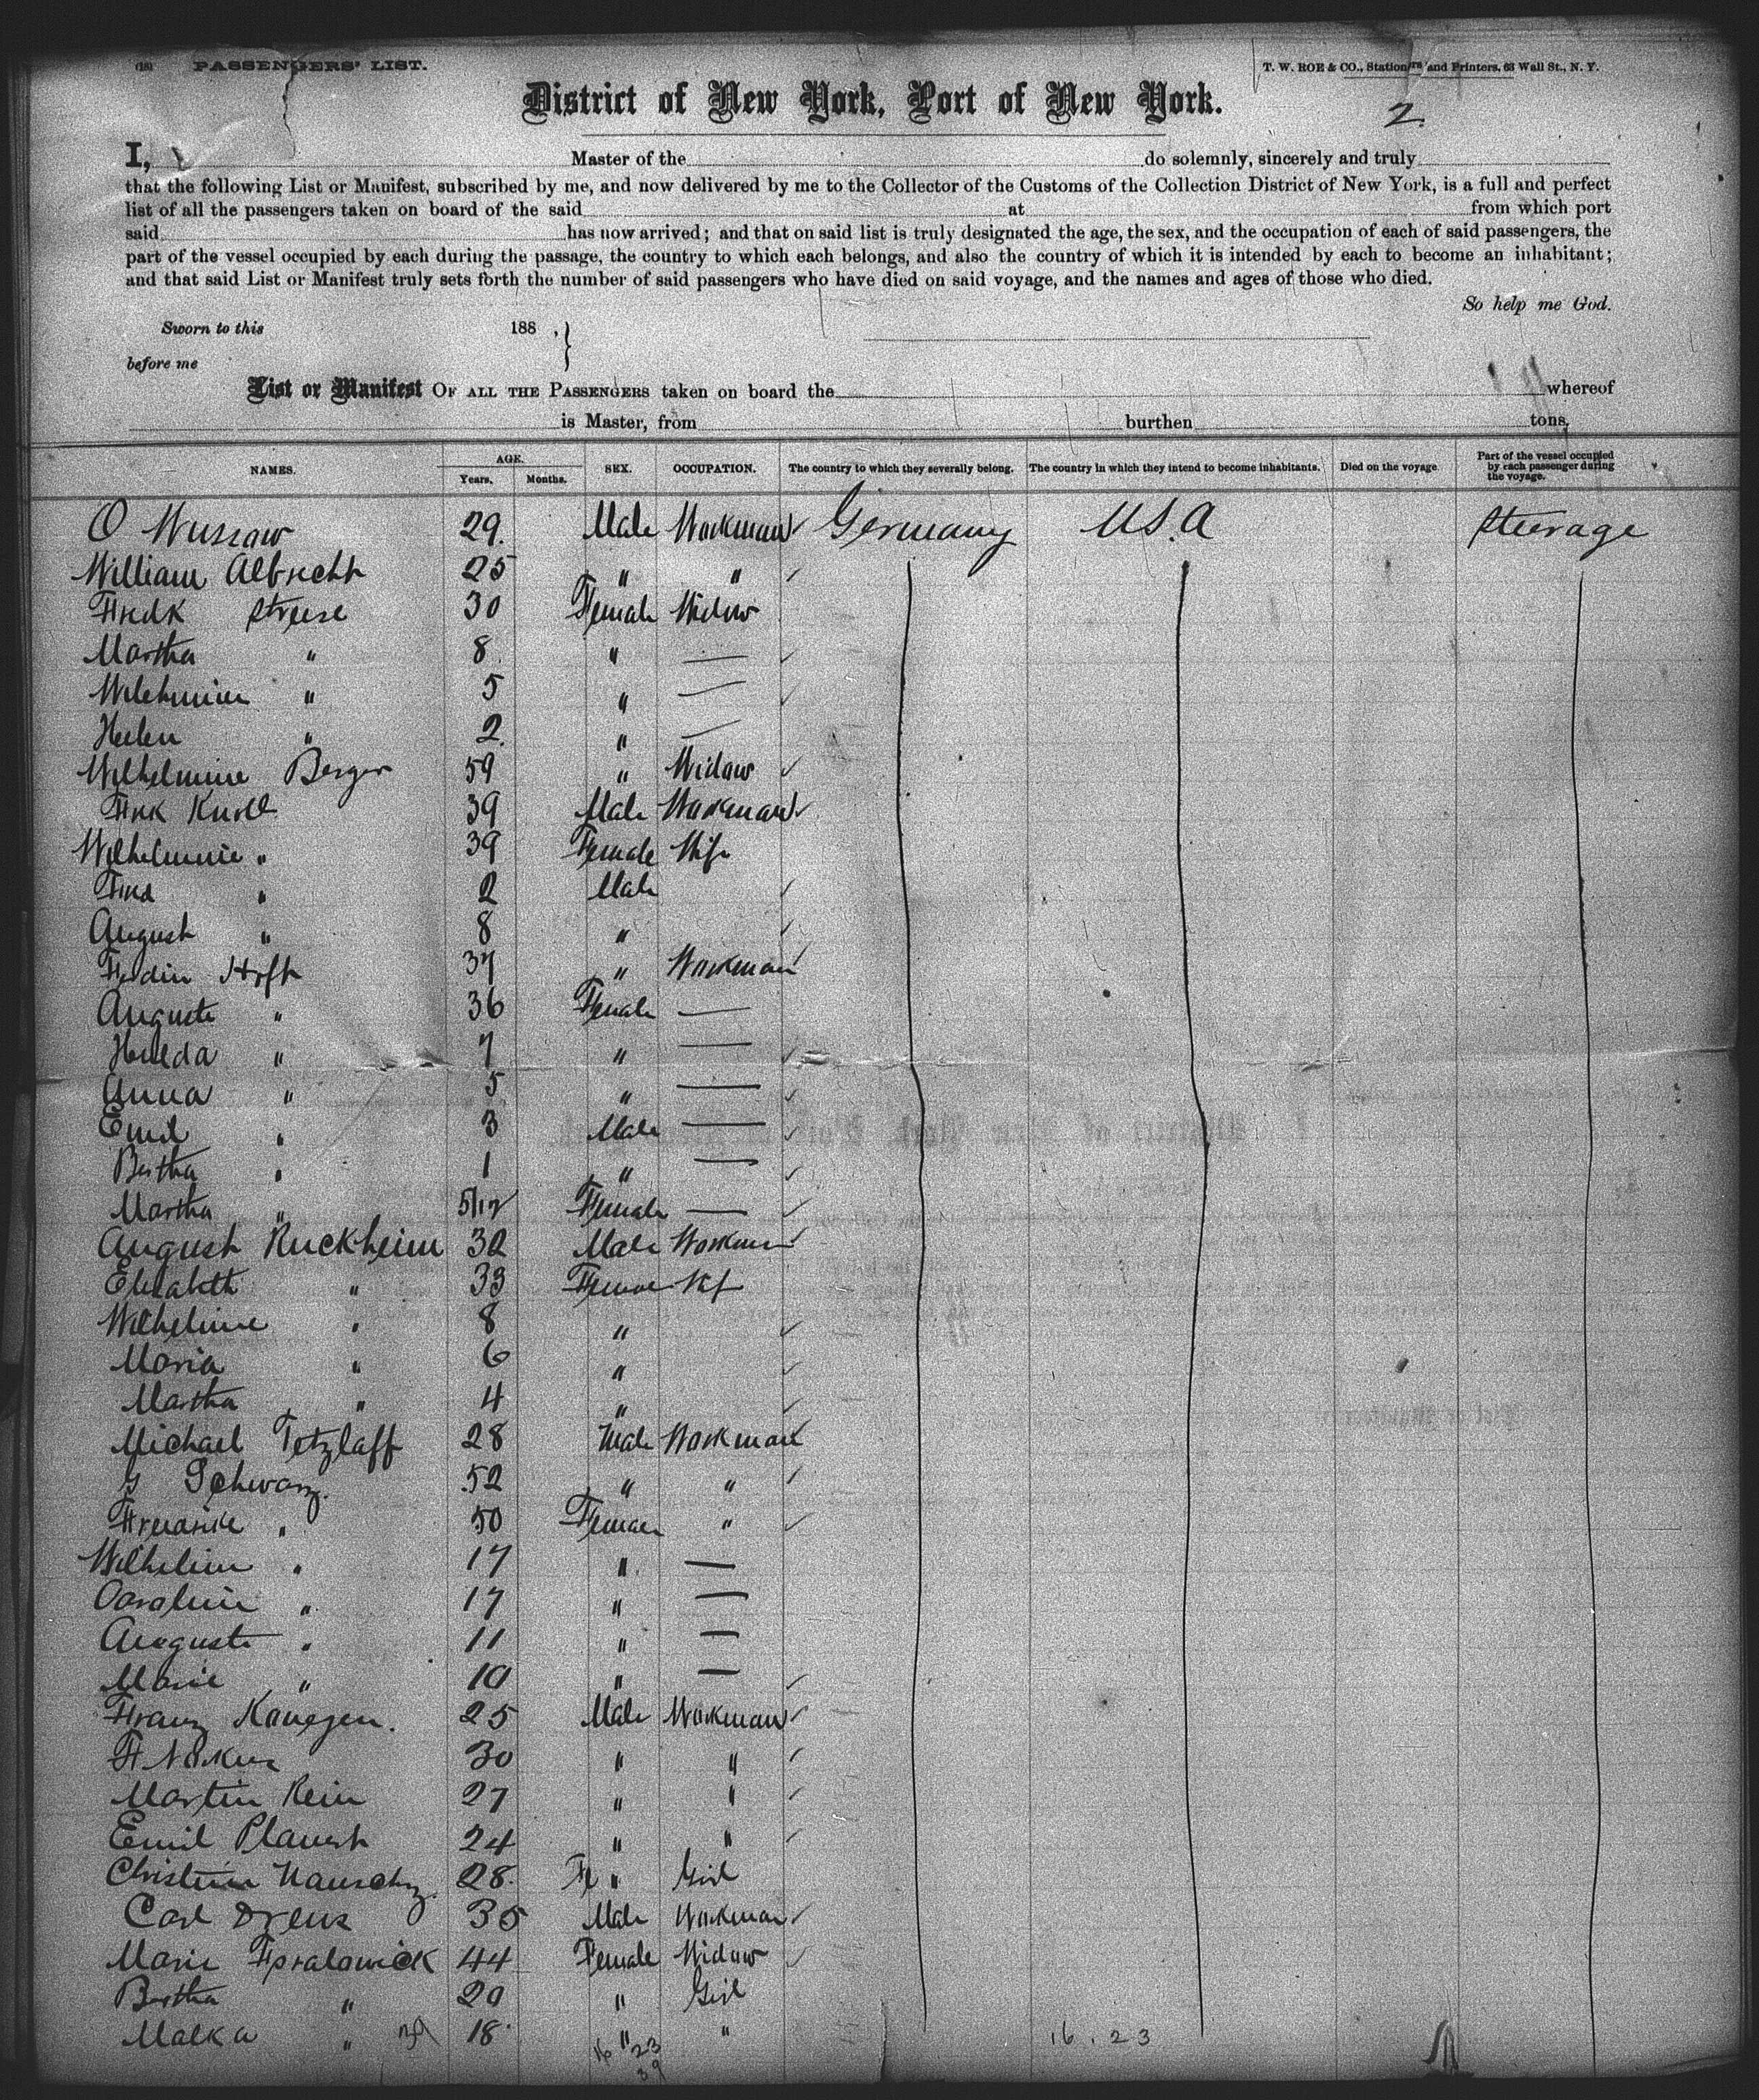 (18) PASSENGERS' LIST. T. W. ROE & CO., Stationers and Printers, 63 Wall St., N. Y.
District of New York, Port of New York.
2
I, Master of the do solemnly, sincerely and truly
that the following List or Manifest, subscribed by me, and now delivered by me to the Collector of the Customs of the Collection District of New York, is a full and perfect
list of all the passengers taken on board of the said at from which port
said has now arrived; and that on said list is truly designated the age, the sex, and the occupation of each of said passengers, the
part of the vessel occupied by each during the passage, the country to which each belongs, and also the country of which it is intended by each to become an inhabitant;
and that said List or Manifest truly sets forth the number of said passengers who have died on said voyage, and the names and ages of those who died.
So help me God.
Sworn to this 188 , }
before me
List or Manifest OF ALL THE PASSENGERS taken on board the whereof
is Master, from burthen tons,
NAMES. AGE. Years. Months. SEX. OCCUPATION. The country to which they severally belong. The country in which they intend to become inhabitants. Died on the voyage Part of the vessel occupied by each passenger during the voyage.
O 29. Male Workman Germany U.S.A Steerage
William Albrecht 25 " "
Fredk Streese 30 Female Widow
Martha " 8 " —
" 5 " —
Helen " 2. " —
Wilhelmine Berger 59 " Widow
Knoll 39 Male Workman
Wilhelmine " 39 Female Wife
" 2 Male
August " 8 "
Ferdin Hoft 37 " Workman
Auguste " 36 Female —
Hulda " 7 " —
Anna " 5 " —
Emil " 3 Male —
Bertha " 1 " —
Martha " 5/12 Female —
August Ruckheim 32 Male Workman
Elisabeth " 33 Female Wf
Wilhelmine " 8 "
Maria " 6 "
Martha " 4 "
Michael Tetzlaff 28 Male Workman
G Schwarz. 52 " "
" 50 Female "
Wilhelmin " 17 " —
Carolin " 17 " —
Auguste " 11 " —
Marie " 10 " —
Franz 25 Male Workman
F 30 " "
Martin Rein 27 " "
Emil 24 " "
Christine 28. Fe " Girl
Carl Drews 35 Male Workman
Marie 44 Female Widow
Bertha " 20 " Girl
Malka " 39 18 " "
16 23 16 . 23
39